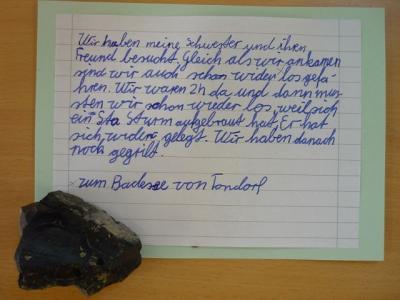 Wir haben meine Schwester und ihren
Freund besucht. Gleich als wir ankamen
sind wir auch schon wider losgefa-
hren. Wir waren 2h da und dann mus-
sten wir schon wieder los, weil sich
ein Sta Sturm aufgebraut hat. Er hat
sich widere gelegt. Wir haben danach
noch gegrilt.
zum Badesee von Tondorf